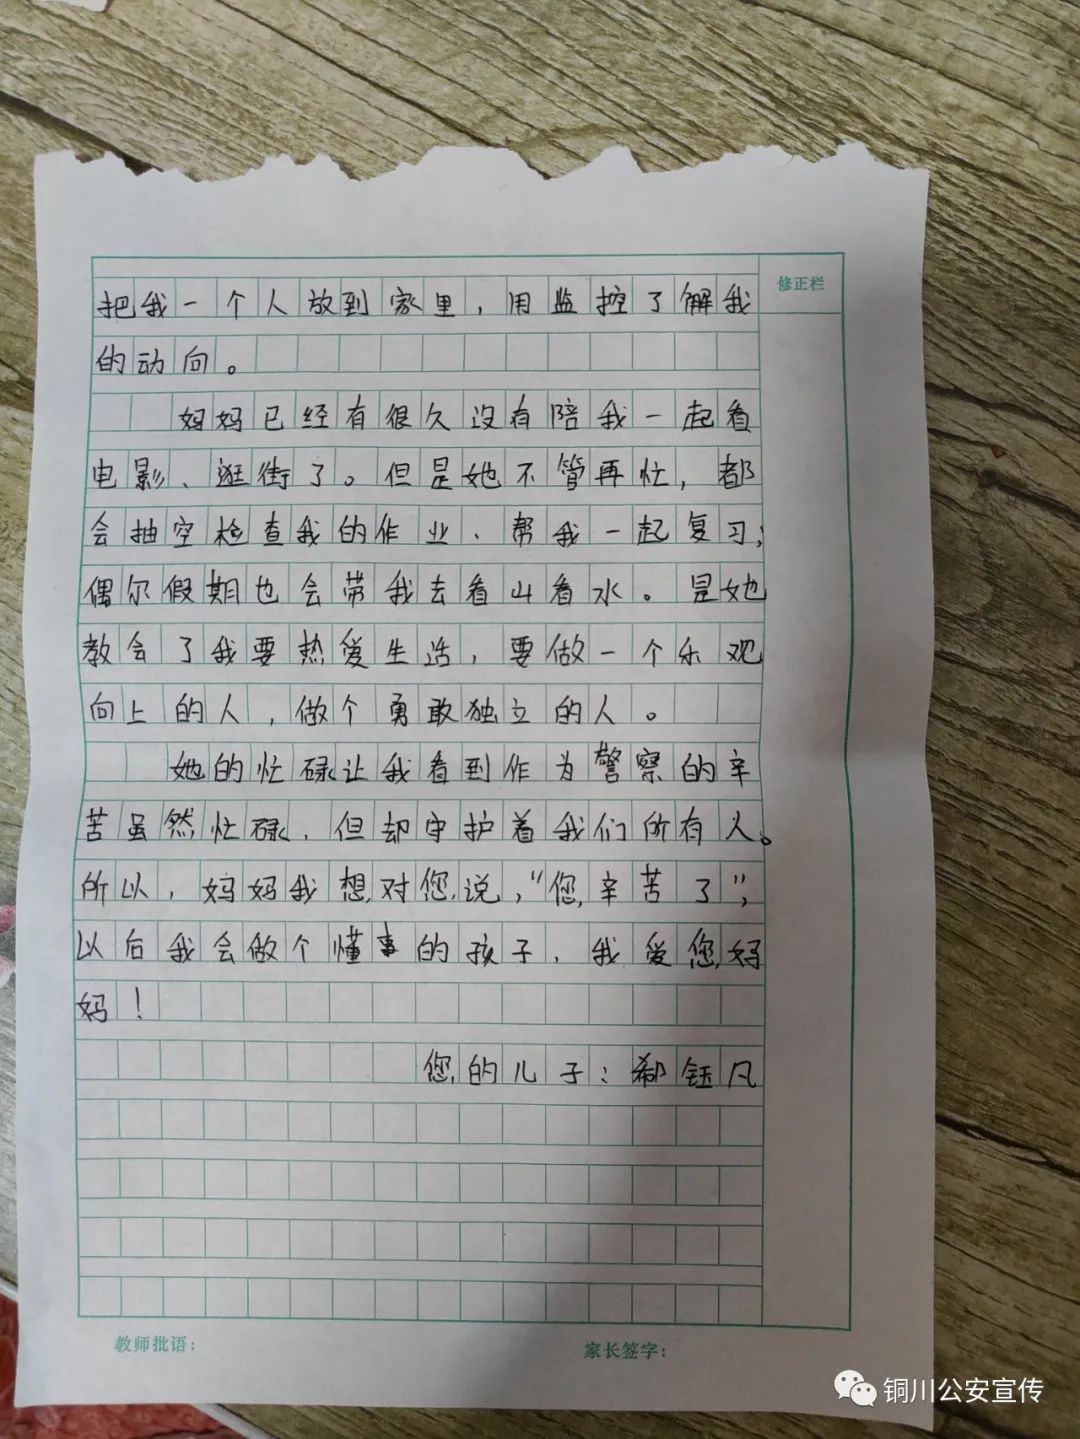 修正栏
把我一个人放到家里，用监控了解我
的动向。
妈妈已经有很久没有陪我一起看
电影、逛街了。但是她不管再忙，都
会抽空检查我的作业、帮我一起复习；
偶尔假期也会带我去看山看水。是她
教会了我要热爱生活，要做一个乐观
向上的人，做个勇敢独立的人。
她的忙碌让我看到作为警察的辛
苦虽然忙碌，但却守护着我们所有人。
所以，妈妈我想对您说，“您辛苦了”，
以后我会做个懂事的孩子，我爱您妈
妈！
您的儿子：郗钰凡
教师批语：
家长签字：
铜川公安宣传